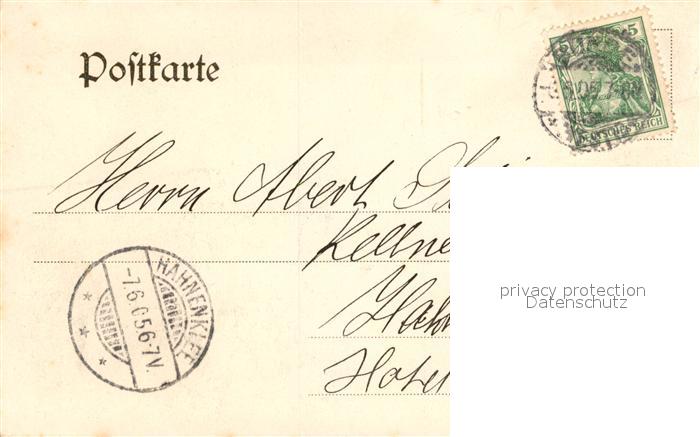 Postkarte
5
DEUTSCHES REICH
Herrn Albert
Kellne
HAHNENKLEE
-7.6.05.6-7V.
Hahn
Hotel
privacy protection
Datenschutz